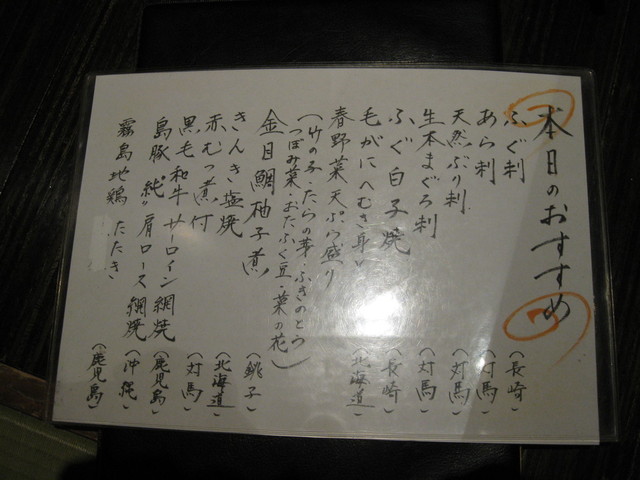 本日のおすすめ
ふぐ刺 (長崎)
あら刺 (対馬)
天然ぶり刺 (対馬)
生本まぐろ刺 (対馬)
ふぐ白子焼 (長崎)
毛がに(むき身) (北海道)
春野菜天ぷら盛り
(竹の子・たらの芽・ふきのとう
つぼみ菜・おたふく豆・菜の花)
金目鯛柚子煮 (銚子)
きんき塩焼 (北海道)
赤むつ煮付 (対馬)
黒毛和牛サーロイン網焼 (鹿児島)
島豚"純"肩ロース網焼 (沖縄)
霧島地鶏たたき (鹿児島)